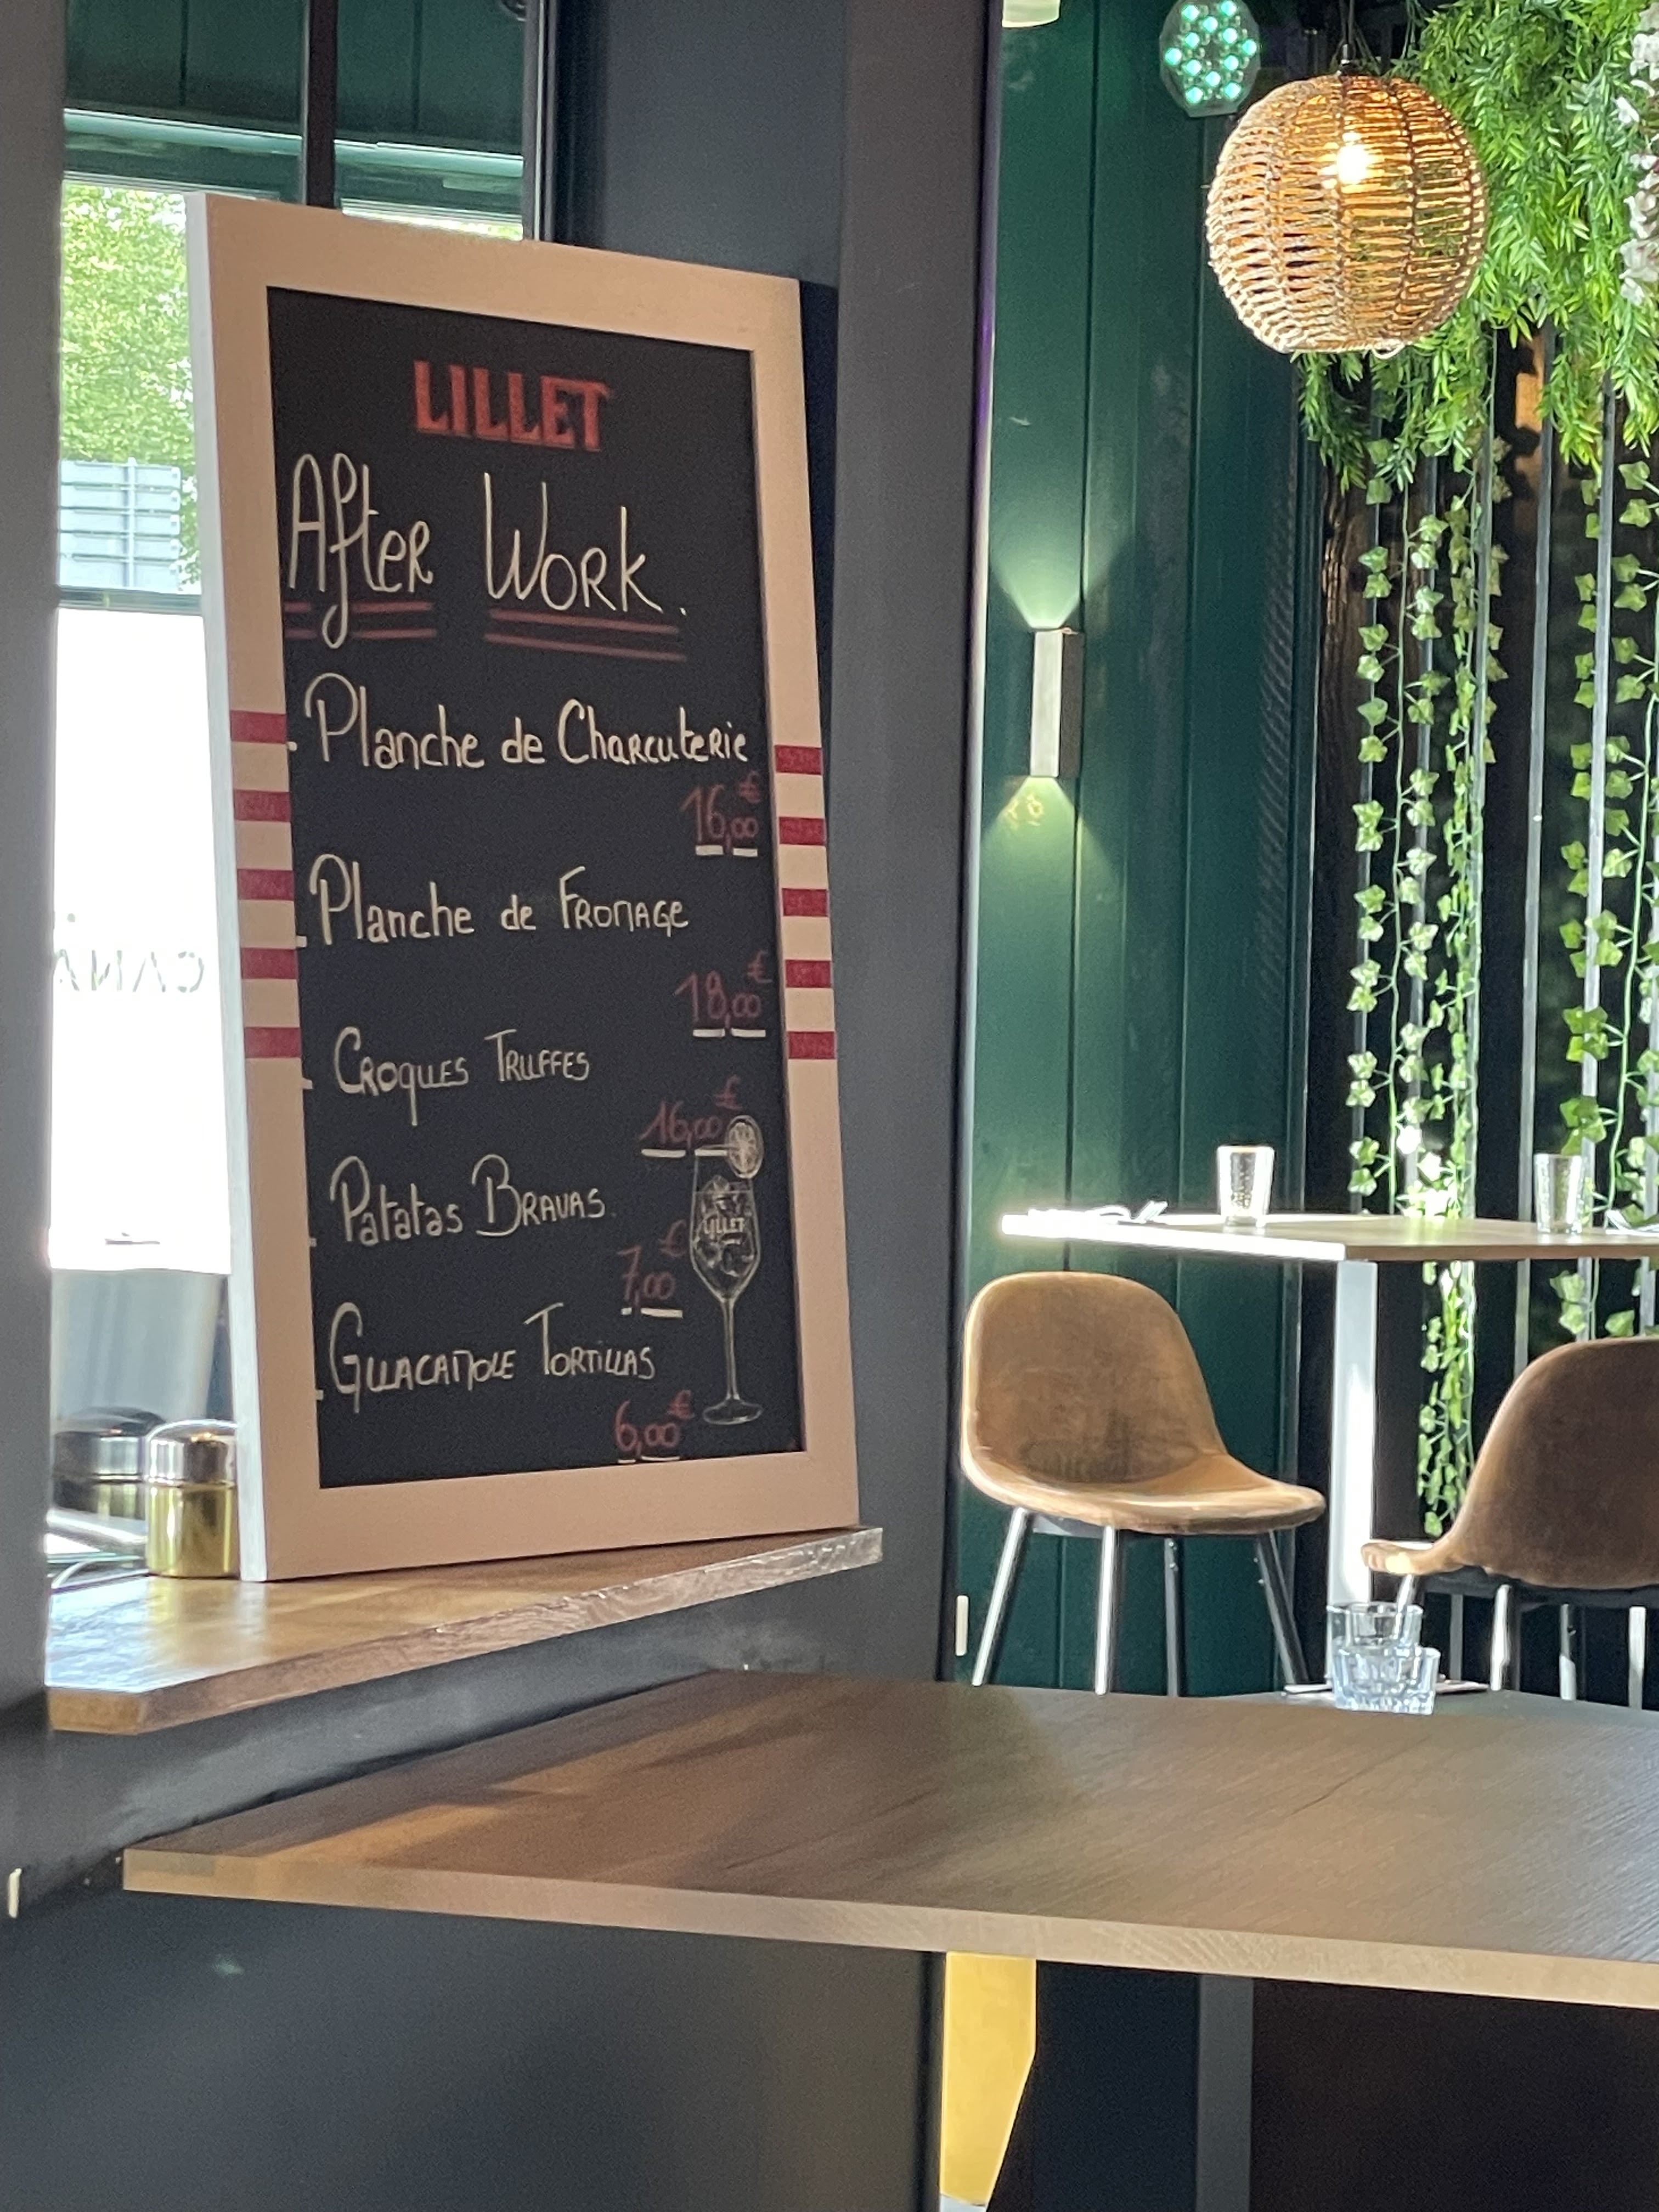 LILLET
After Work.
Planche de Charcuterie
16,00€
Planche de Fromage
18,00€
Croques Truffes
16,00€
Patatas Bravas.
7,00€
LILLET
Guacamole Tortillas
6,00€